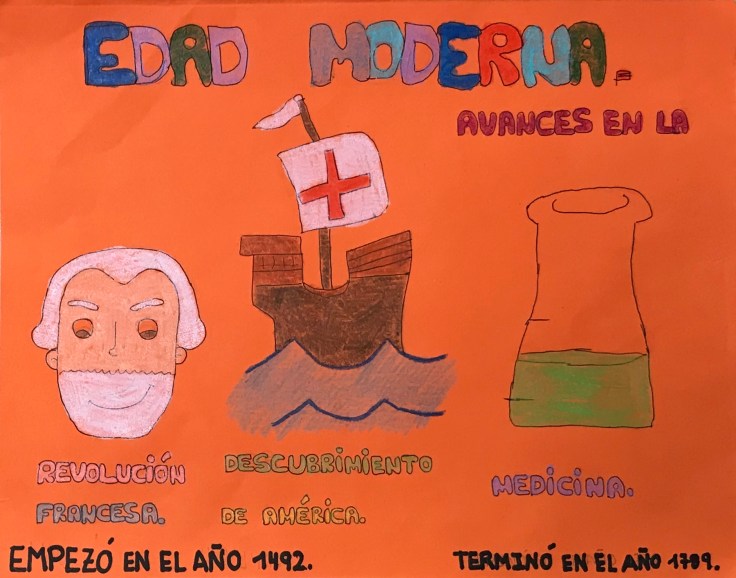 EDAD MODERNA.
AVANCES EN LA
REVOLUCIÓN
FRANCESA.
DESCUBRIMIENTO
DE AMÉRICA.
MEDICINA.
EMPEZÓ EN EL AÑO 1492.
TERMINÓ EN EL AÑO 1789.